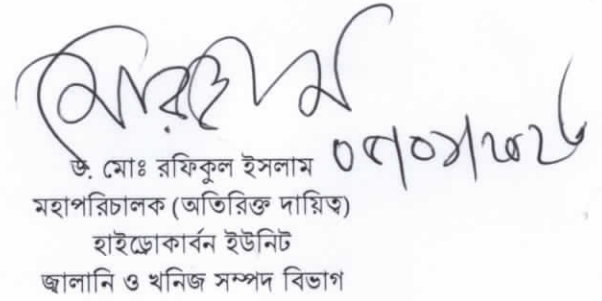 ড. মোঃ রফিকুল ইসলাম
মহাপরিচালক (অতিরিক্ত দায়িত্ব)
হাইড্রোকার্বন ইউনিট
জ্বালানি ও খনিজ সম্পদ বিভাগ